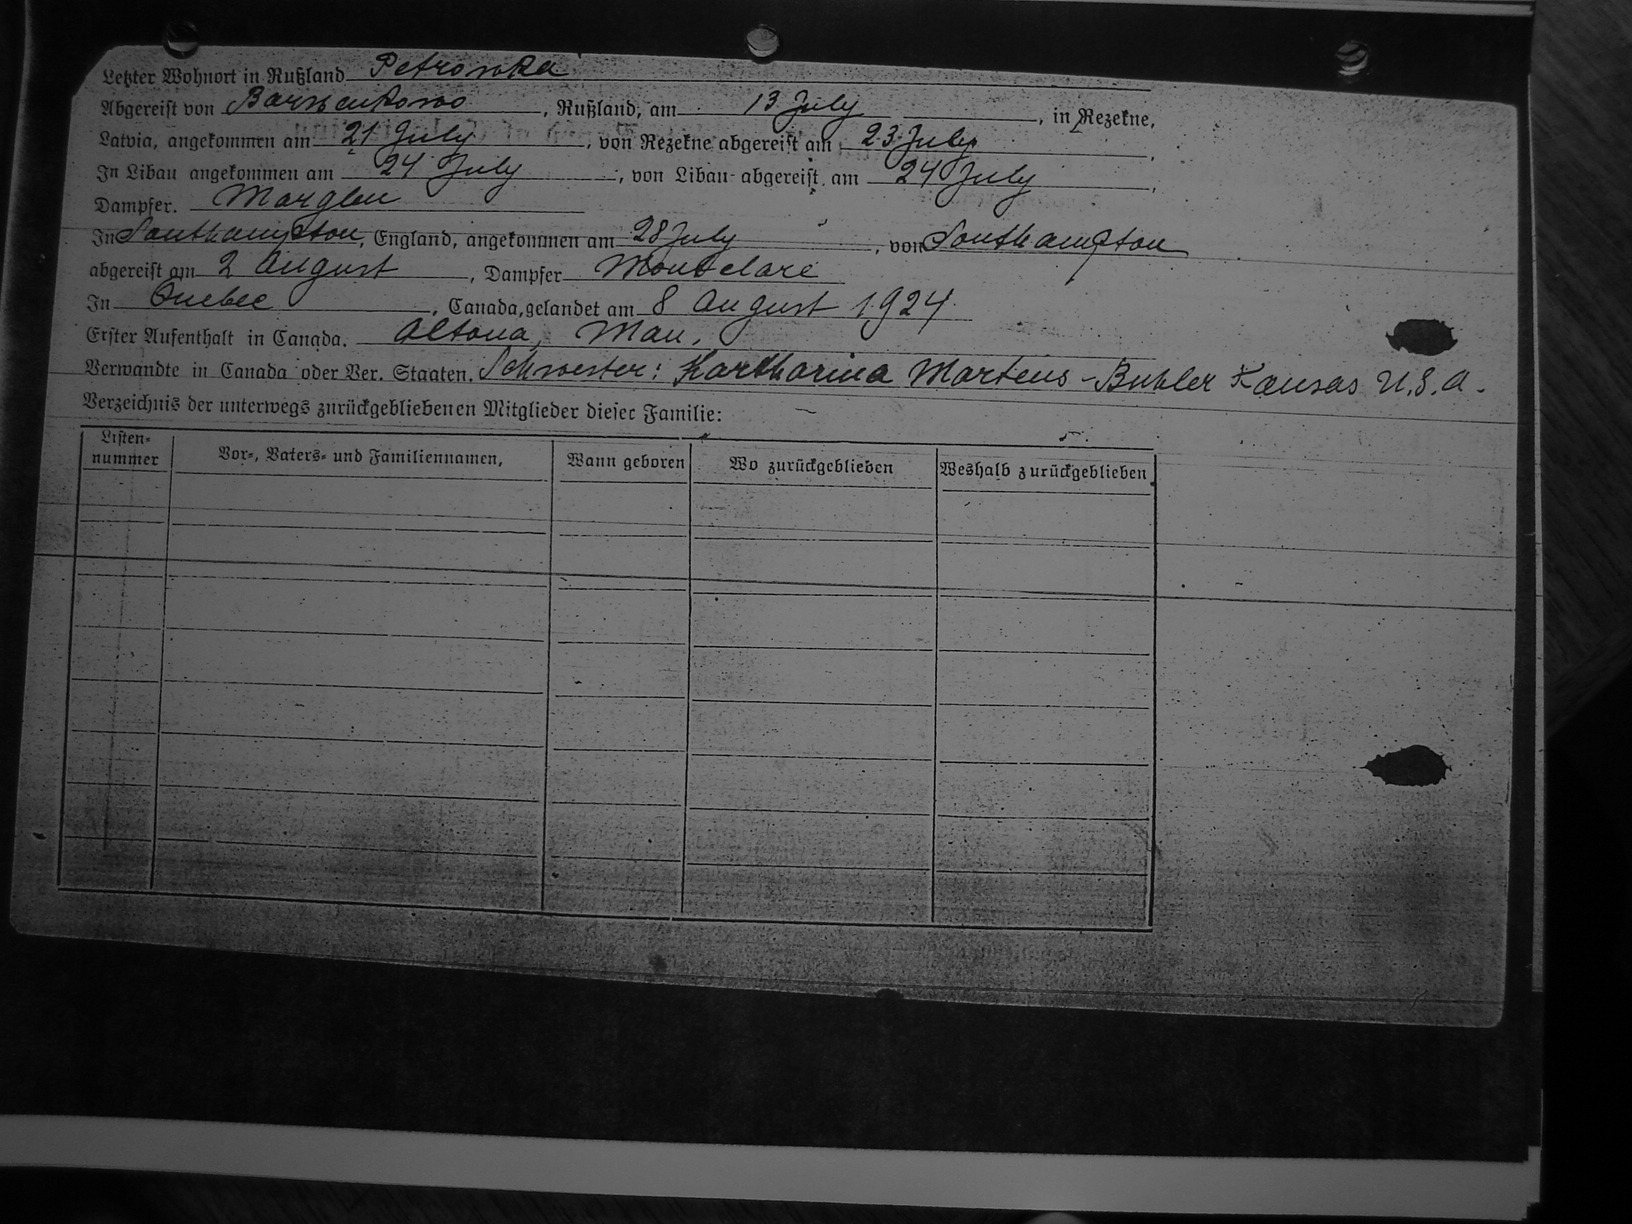 Letzter Wohnort in Rußland Petrowka
Abgereist von Barwenkowo, Rußland, am 13 July, in Rezekne,
Latvia, angekommen am 21 July, von Rezekne abgereist am 23 July,
In Libau angekommen am 24 July, von Libau abgereist am 24 July,
Dampfer. Marglen
In Southampton, England, angekommen am 28 July, von Southampton
abgereist am 2 August, Dampfer Montclare
In Quebec, Canada, gelandet am 8 August 1924.
Erster Aufenthalt in Canada. Altona, Man.
Verwandte in Canada oder Ver. Staaten. Schwester: Kartharina Martens - Buhler Kansas U.S.A.
Verzeichnis der unterwegs zurückgebliebenen Mitglieder dieser Familie: —
Listen-
nummer
Vor-, Vaters- und Familiennamen,
Wann geboren
Wo zurückgeblieben
Weshalb zurückgeblieben